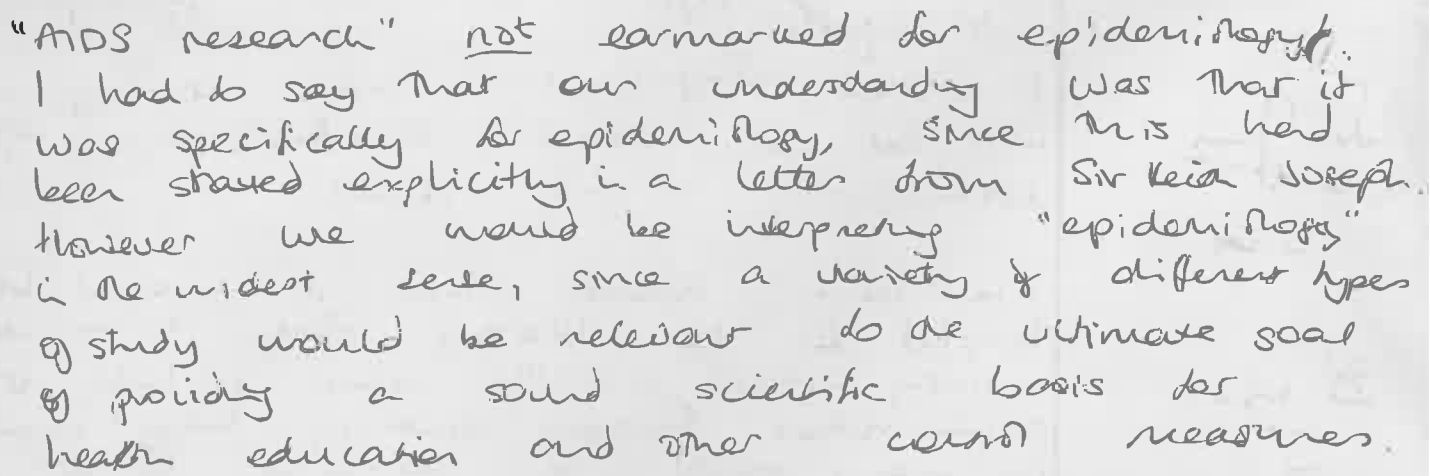 "AIDS research" not earmarked for epidemiology.
I had to say that our understanding was that it
was specifically for epidemiology, since this had
been stated explicitly in a letter from Sir Keith Joseph.
However we would be interpreting "epidemiology"
in the widest sense, since a variety of different types
of study would be relevant to the ultimate goal
of providing a sound scientific basis for
health education and other control measures.